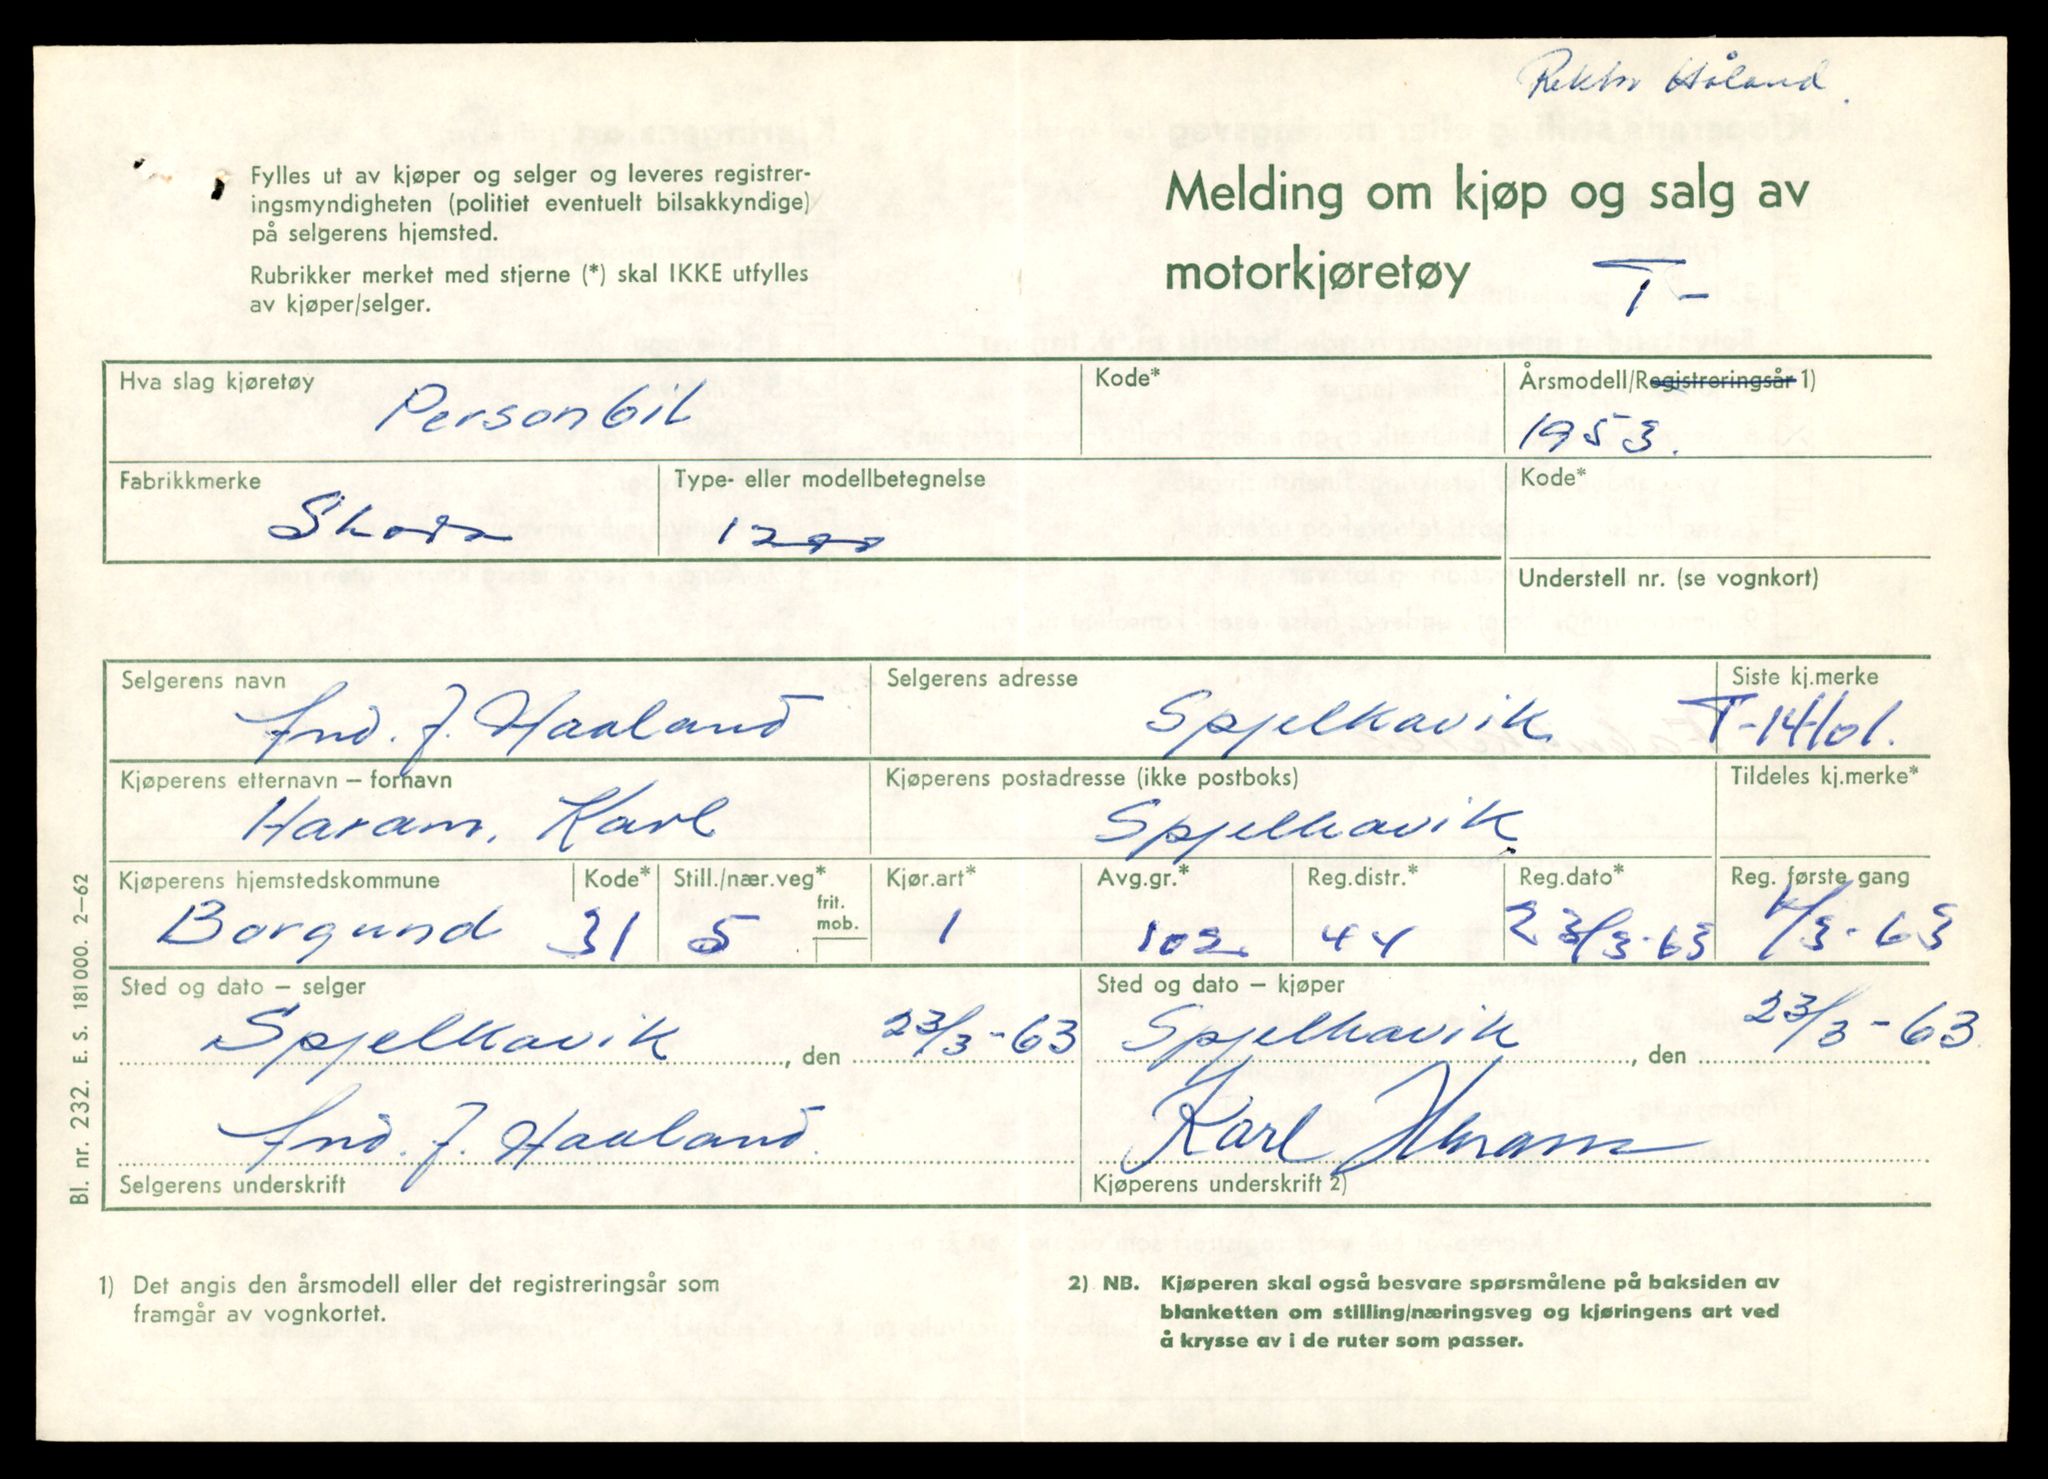 Rektor Håland.
Fylles ut av kjøper og selger og leveres registrer-
ingsmyndigheten (politiet eventuelt bilsakkyndige)
på selgerens hjemsted.
Rubrikker merket med stjerne (*) skal IKKE utfylles
av kjøper/selger.
Melding om kjøp og salg av
motorkjøretøy T-
Hva slag kjøretøy Kode* Årsmodell/Registreringsår 1)
Personbil 1953.
Fabrikkmerke Type- eller modellbetegnelse Kode*
Skoda 1200
Understell nr. (se vognkort)
Selgerens navn Selgerens adresse Siste kj.merke
And. J. Haaland Spjelkavik T-14101.
Kjøperens etternavn – fornavn Kjøperens postadresse (ikke postboks) Tildeles kj.merke*
Haram, Karl Spjelkavik
Kjøperens hjemstedskommune Kode* Still./nær.veg* frit. mob. Kjør.art* Avg.gr.* Reg.distr.* Reg.dato* Reg. første gang
Borgund 31 5 1 102 44 23/3-63 /3-63
Sted og dato – selger Sted og dato – kjøper
Spjelkavik, den 23/3-63 Spjelkavik, den 23/3-63
And. J. Haaland Karl Haram
Selgerens underskrift Kjøperens underskrift 2)
1) Det angis den årsmodell eller det registreringsår som
framgår av vognkortet.
2) NB. Kjøperen skal også besvare spørsmålene på baksiden av
blanketten om stilling/næringsveg og kjøringens art ved
å krysse av i de ruter som passer.
Bl. nr. 232. E. S. 181000. 2–62